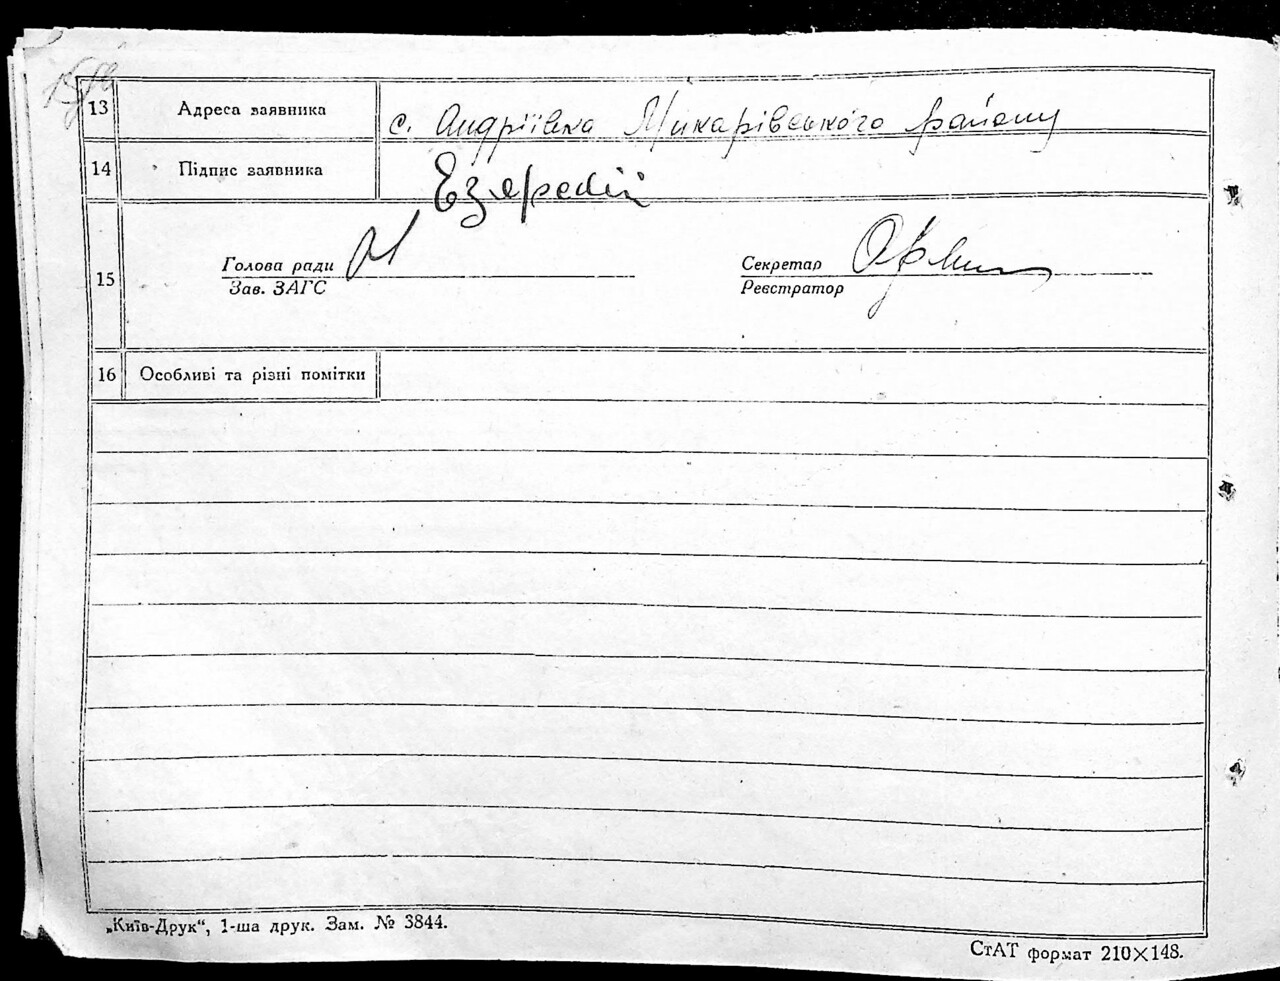 13 Адреса заявника с. Андріївка Макарівського району
14 Підпис заявника
15 Голова ради Секретар
Зав. ЗАГС Реєстратор
16 Особливі та різні помітки
„Київ-Друк“, 1-ша друк. Зам. № 3844.
СтАТ формат 210×148.